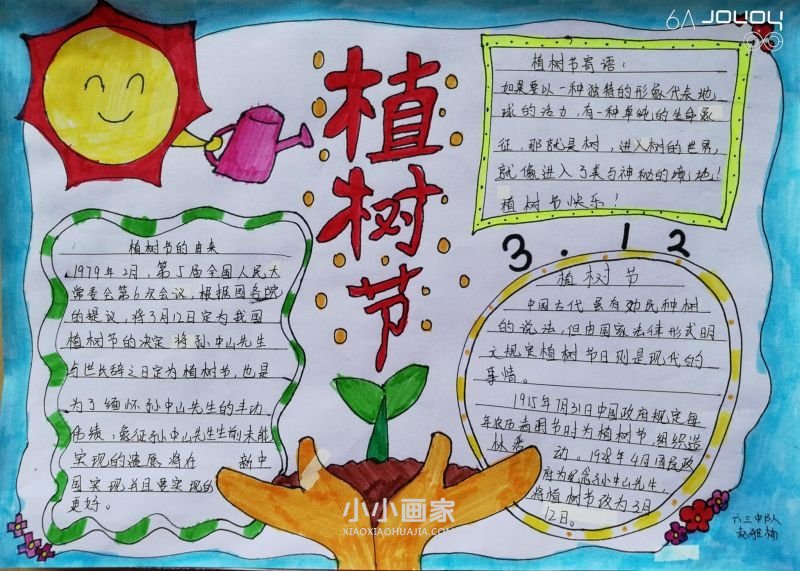 6A JOYOY
植树节
植树节寄语:
如果要以一种独特的形象代表地
球的活力,有一种单纯的生命象
征,那就是树,进入树的世界,
就像进入了类与神秘的境地!
植树节快乐!
3.12
植树节的由来
1979年2月,第5届全国人民大
常委会第6次会议,根据国务院
的提议,将3月12日定为我国
植树节的决定 将孙中山先生
与世长辞之日定为植树节,也是
为了缅怀孙中山先生的丰功
伟绩,象征孙中山先生生前未能
实现的遗愿将在 新中
国实现并且要实现的
更好。
植树节
中国古代虽有劝民种树
的说法,但由国家法律形式明
文规定植树节日则是现代的
事情。
1915年7月31日中国政府规定每
年农历清明节时为植树节,组织造
林 动。1928年4月国民政
府为纪念孙中山先生,
将植树节改为3月
12日。
六三中队
赵雅楠
小小画家
XIAOXIAOHUAJIA.COM